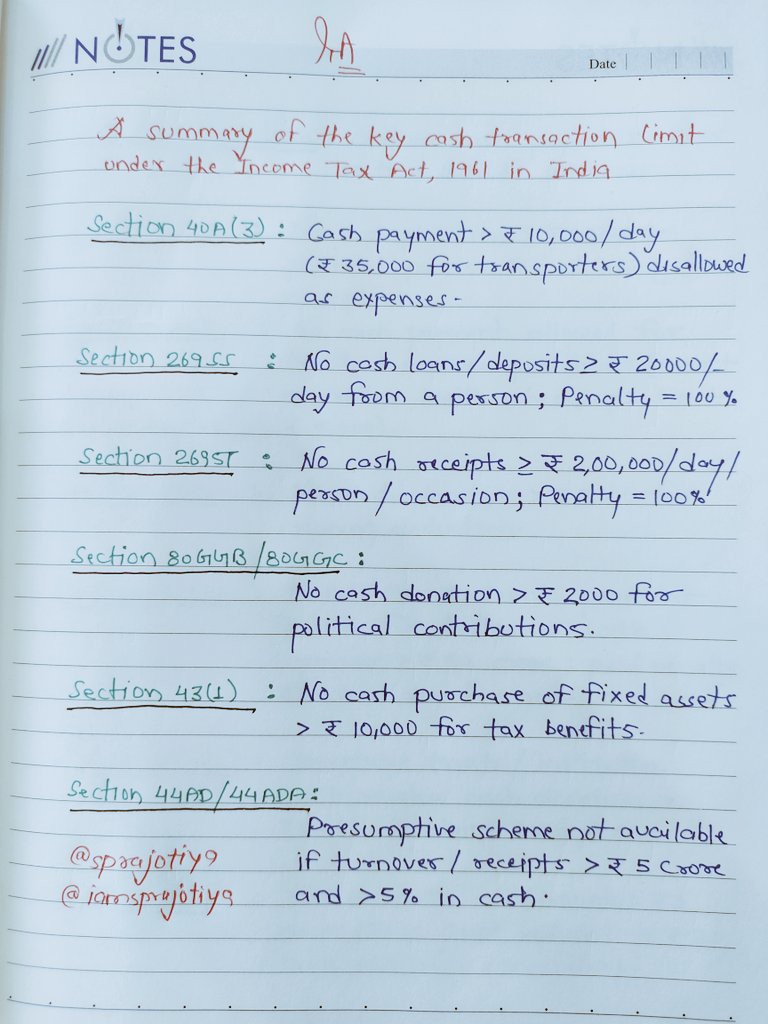 NOTES
Date
A summary of the key cash transaction limit
under the Income Tax Act, 1961 in India
Section 40A(3) : Cash payment > ₹ 10,000/day
(₹ 35,000 for transporters) disallowed
as expenses.
Section 269SS : No cash loans/deposits ≥ ₹ 20000/-
day from a person; Penalty = 100%
Section 269ST : No cash receipts ≥ ₹ 2,00,000/day/
person/occasion; Penalty = 100%
Section 80GGB/80GGC :
No cash donation > ₹ 2000 for
political contributions.
Section 43(1) : No cash purchase of fixed assets
> ₹ 10,000 for tax benefits.
Section 44AD/44ADA :
Presumptive scheme not available
@sprajotiya if turnover/receipts > ₹ 5 crore
@iamsprajotiya and >5% in cash.